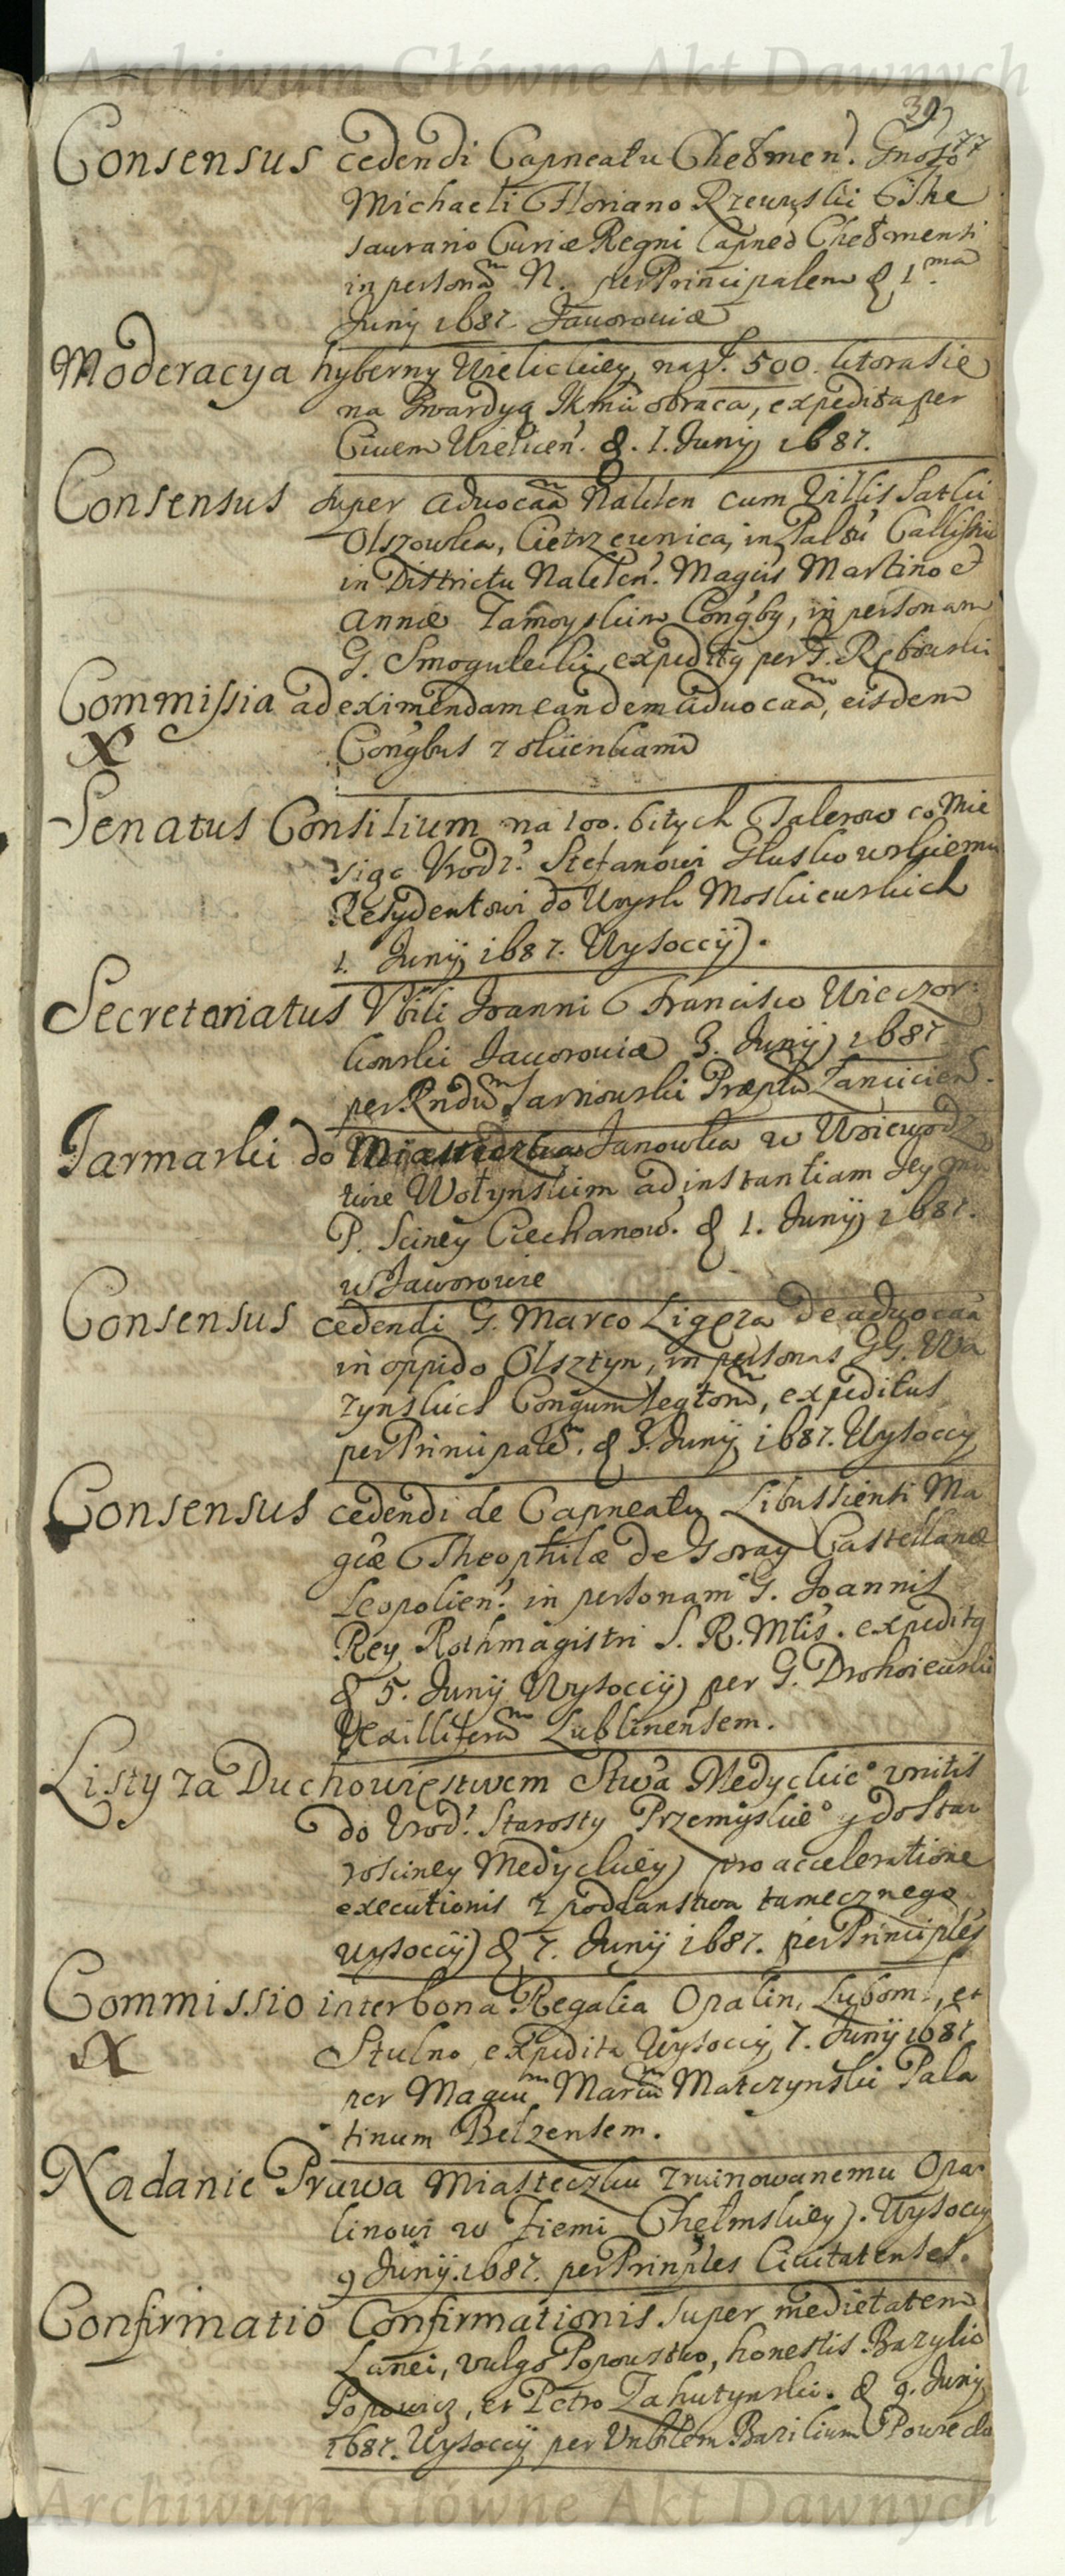 Archiwum Główne Akt Dawnych
39
77
Consensus cedendi Capneatu Chełmen. Gnoso
Michaeli Floriano Rzewuski The
saurario Curiæ Regni Capneo Chełmensi
in personam N. per Principalem d. 1.ma
Junij 1687. Jaworoviæ
Moderacya hyberny Wielickiey, na f. 500. ktora sie
na Gwardyą JKMci obraca, expedita per
Civem Wielicen. d. 1. Junij 1687.
Consensus super advocaam Naklen cum Villis Satki
Olszowka, Cietrzewnica, in Paltu Callissien
in Districtu Naklen. Magcis Martino et
Annæ Zamoyskim Congby, in personam
G. Smogulecki, expedity per G. Rębowski
Commissia ad eximendam eandem advocaam, eisdem
X Congbus z okienkami
Senatus Consilium na 100. bitych Talerow co Mie
siąc Urodz. Stefanowi Głuskowskiemu
Residentowi do Woysk Moskiewskich
1. Junij 1687. Wysoccij.
Secretariatus Nbili Joanni Francisco Wieczor
kowski Jaworoviæ 3. Junij 1687
per Rndum Tarnowski Præptum Lancicien.
Jarmarki do Miasteczka Janowka w Woiewodz
twie Wołynskim ad instantiam Jey Mci
P. Sciney Ciechanow. d. 1. Junij 1687.
w Jaworowie
Consensus cedendi G. Marco Ligęza de advocaa
in oppido Olsztyn, in personas GG. Wa
zynskich Congum legtom, expeditus
per Principalem. d. 3. Junij 1687. Wysoccij
Consensus cedendi de Capneatu Libussiensi Ma
gcæ Theophilæ de Goray Castellanæ
Leopolien. in personam G. Joannis
Rey Rothmagistri S. R. Mtis. expedity
d 5. Junij Wysoccij per G. Drohoiewski
Vexilliferum Lublinensem.
Listy za Duchowięstwem Stwa Medyckiego unitis
do Urod. Starosty Przemyskiego y do Sta
rosciney Medyckiey pro acceleratione
executionis z poddanstwa tamecznego
Wysoccij d 7. Junij 1687. per Principles
Commissio inter bona Regalia Opalin, Lubom., et
X Stulno, expedita Wysoccij 7. Junij 1687
per Magcum Marcum Matczynski Pala
tinum Belzensem.
Nadanie Prawa Miasteczku zruinowanemu Opa
linowi w Ziemi Chełmskiey. Wysoccij
9 Junij. 1687. per Prinples Civitatenses.
Confirmatio Confirmationis super medietatem
Lanei, vulgo Popowstwo, honestis Bazylio
Popowicz, et Petro Zahutynski. d 9. Junij
1687. Wysoccij per Unbilem Bazilium Powieda
Archiwum Główne Akt Dawnych